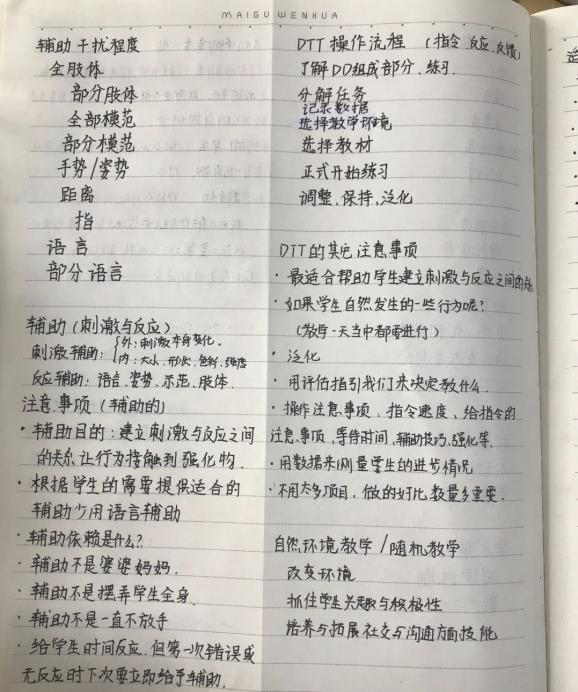 MAIGU WENHUA
辅助干扰程度
全肢体
部分肢体
全部模范
部分模范
手势/姿势
距离
指
语言
部分语言
辅助(刺激与反应)
刺激辅助:
外:刺激本身变化.
内:大小、形状、色彩、强度
反应辅助:语言、姿势、示范、肢体.
注意事项(辅助的)
·辅助目的:建立刺激与反应之间
的关系让行为接触到强化物.
·根据学生的需要提供适合的
辅助少用语言辅助
·辅助依赖是什么?
·辅助不是婆婆妈妈.
·辅助不是摆弄学生全身.
·辅助不是一直不放手
·给学生时间反应.但第一次错误或
无反应时下次要立即给予辅助.
DTT操作流程 (指令.反应.反馈)
了解DD组成部分、练习.
分解任务
记录数据
选择教学环境
选择教材
正式开始练习
调整、保持、泛化
DTT的其它注意事项
·最适合帮助学生建立刺激与反应之间的
·如果学生自然发生的一些行为呢?
(教导一天当中都需进行)
·泛化
·用评估指引我们来决定教什么.
·操作注意事项、指令速度、给指令的
注意事项、等待时间,辅助技巧、强化等.
·用数据来测量学生的进步情况
·不用太多项目,做的好比数量多重要.
自然环境教学/随机教学
改变环境
抓住学生兴趣与积极性
培养与拓展社交与沟通方面技能